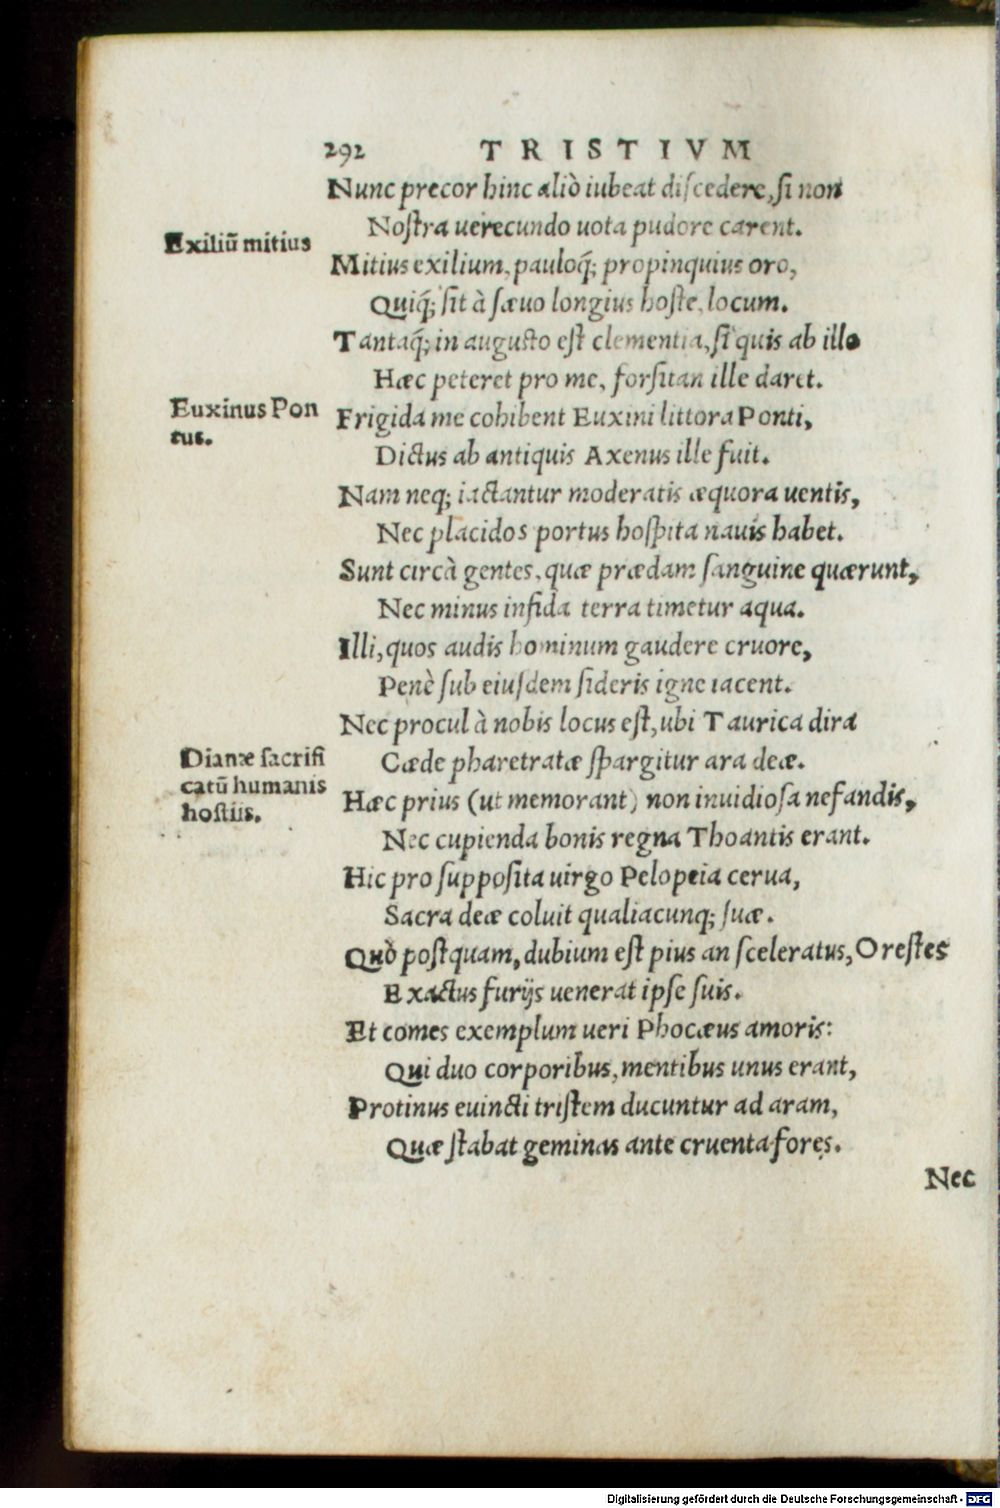 292 TRISTIVM
Nunc precor hinc aliò iubeat discedere, si non
Nostra uerecundo uota pudore carent.
Exiliū mitius
Mitius exilium, pauloq́; propinquius oro,
Quiq́; sit à sæuo longius hoste, locum.
Tantaq́; in augusto est clementia, si quis ab illo
Hæc peteret pro me, forsitan ille daret.
Euxinus Pon
tus.
Frigida me cohibent Euxini littora Ponti,
Dictus ab antiquis Axenus ille fuit.
Nam neq; iactantur moderatis æquora uentis,
Nec placidos portus hospita nauis habet.
Sunt circà gentes, quæ prædam sanguine quærunt,
Nec minus infida terra timetur aqua.
Illi, quos audis hominum gaudere cruore,
Penè sub eiusdem sideris igne iacent.
Nec procul à nobis locus est, ubi Taurica dira
Cæde pharetratæ spargitur ara deæ.
Dianæ sacrifi
catū humanis
hostiis.
Hæc prius (ut memorant) non inuidiosa nefandis,
Nec cupienda bonis regna Thoantis erant.
Hic pro supposita uirgo Pelopeia cerua,
Sacra deæ coluit qualiacunq; suæ.
Quò postquam, dubium est pius an sceleratus, Orestes
Exactus furijs uenerat ipse suis.
Et comes exemplum ueri Phocæus amoris:
Qui duo corporibus, mentibus unus erant,
Protinus euincti tristem ducuntur ad aram,
Quæ stabat geminas ante cruenta fores.
Nec
Digitalisierung gefördert durch die Deutsche Forschungsgemeinschaft - DFG